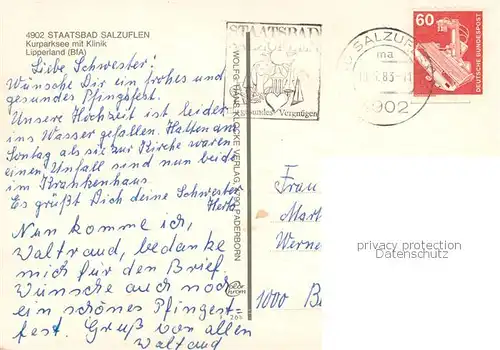 4902 STAATSBAD SALZUFLEN
Kurparksee mit Klinik
Lipperland (BfA)
Liebe Schwester!
Wünsche Dir ein frohes und
gesundes Pfingsfest.
Unsere Hochzeit ist leider
ins Wasser gefallen. Hatten am
Sontag als sie zur Kirche waren
einen Unfall sind nun beid
im Krankenhaus
Es grüßt Dich deine Schwester
Herta
Nun komme ich,
Waltraud, bedanke
mich für den Brief.
Wünsche auch noch
ein schönes Pfingst=
fest. Gruß von allen
Waltaud
WOLFG. HANS KLOCKE VERLAG, 4790 PADERBORN
STAATSBAD
gesundes Vergnügen
SALZUFL
ma
83
4902
60
DEUTSCHE BUNDESPOST
Frau
Mart
Werne
1000 Be
privacy protection
Datenschutz